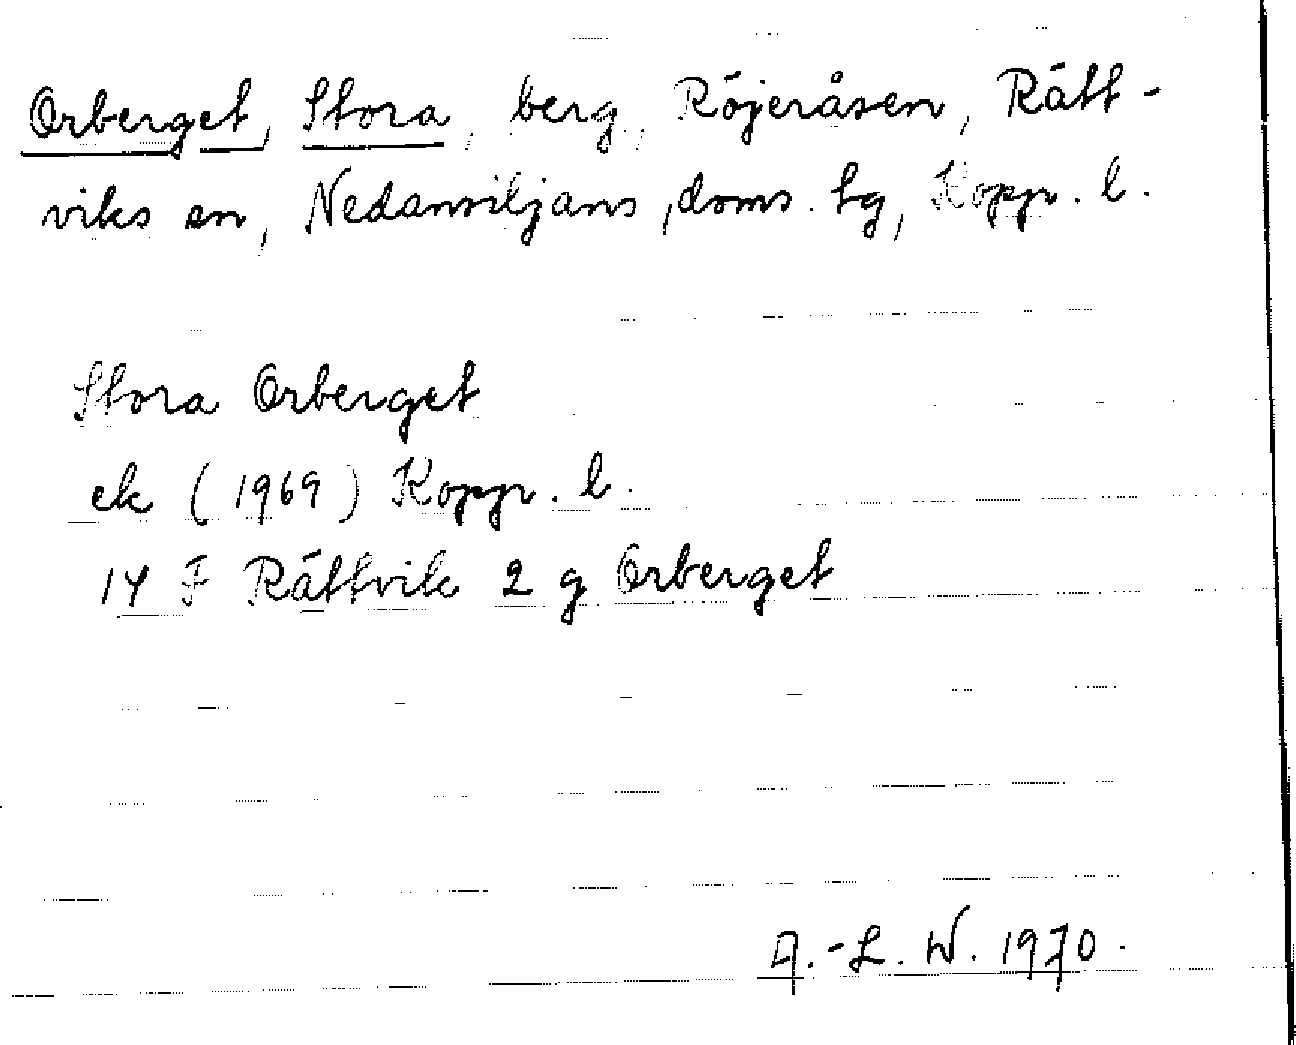 Orberget, Stora, berg, Röjeråsen, Rätt-
viks sn, Nedansiljans doms. tg, Kopp. l.
Stora Orberget
ek (1969) Kopp. l.
14 F Rättvik 2 g Orberget
A.-L. W. 1970.